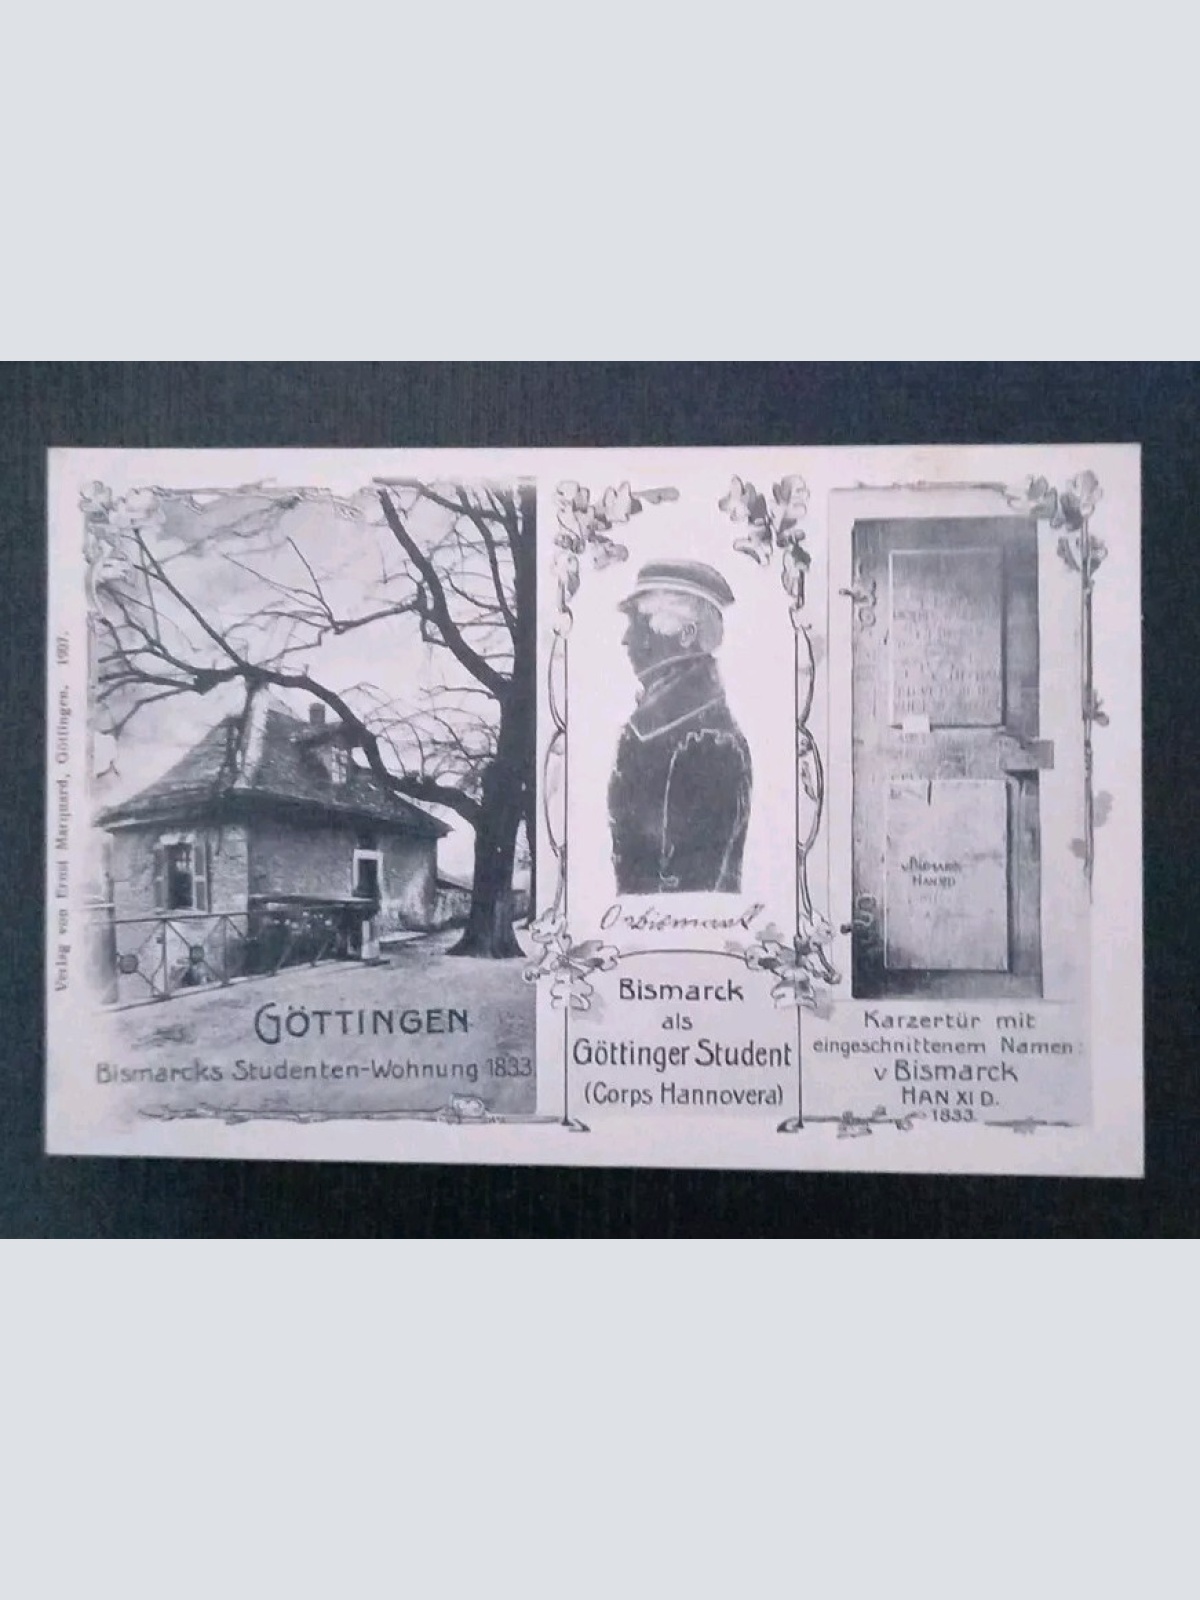 Verlag von Ernst Marquard, Göttingen. 1907.
GÖTTINGEN
Bismarcks Studenten-Wohnung 1833
v Bismarck
Bismarck
als
Göttinger Student
(Corps Hannovera)
Bismarck
HAN XI D
Karzertür mit
eingeschnittenem Namen:
v Bismarck
HAN XI D.
1833.